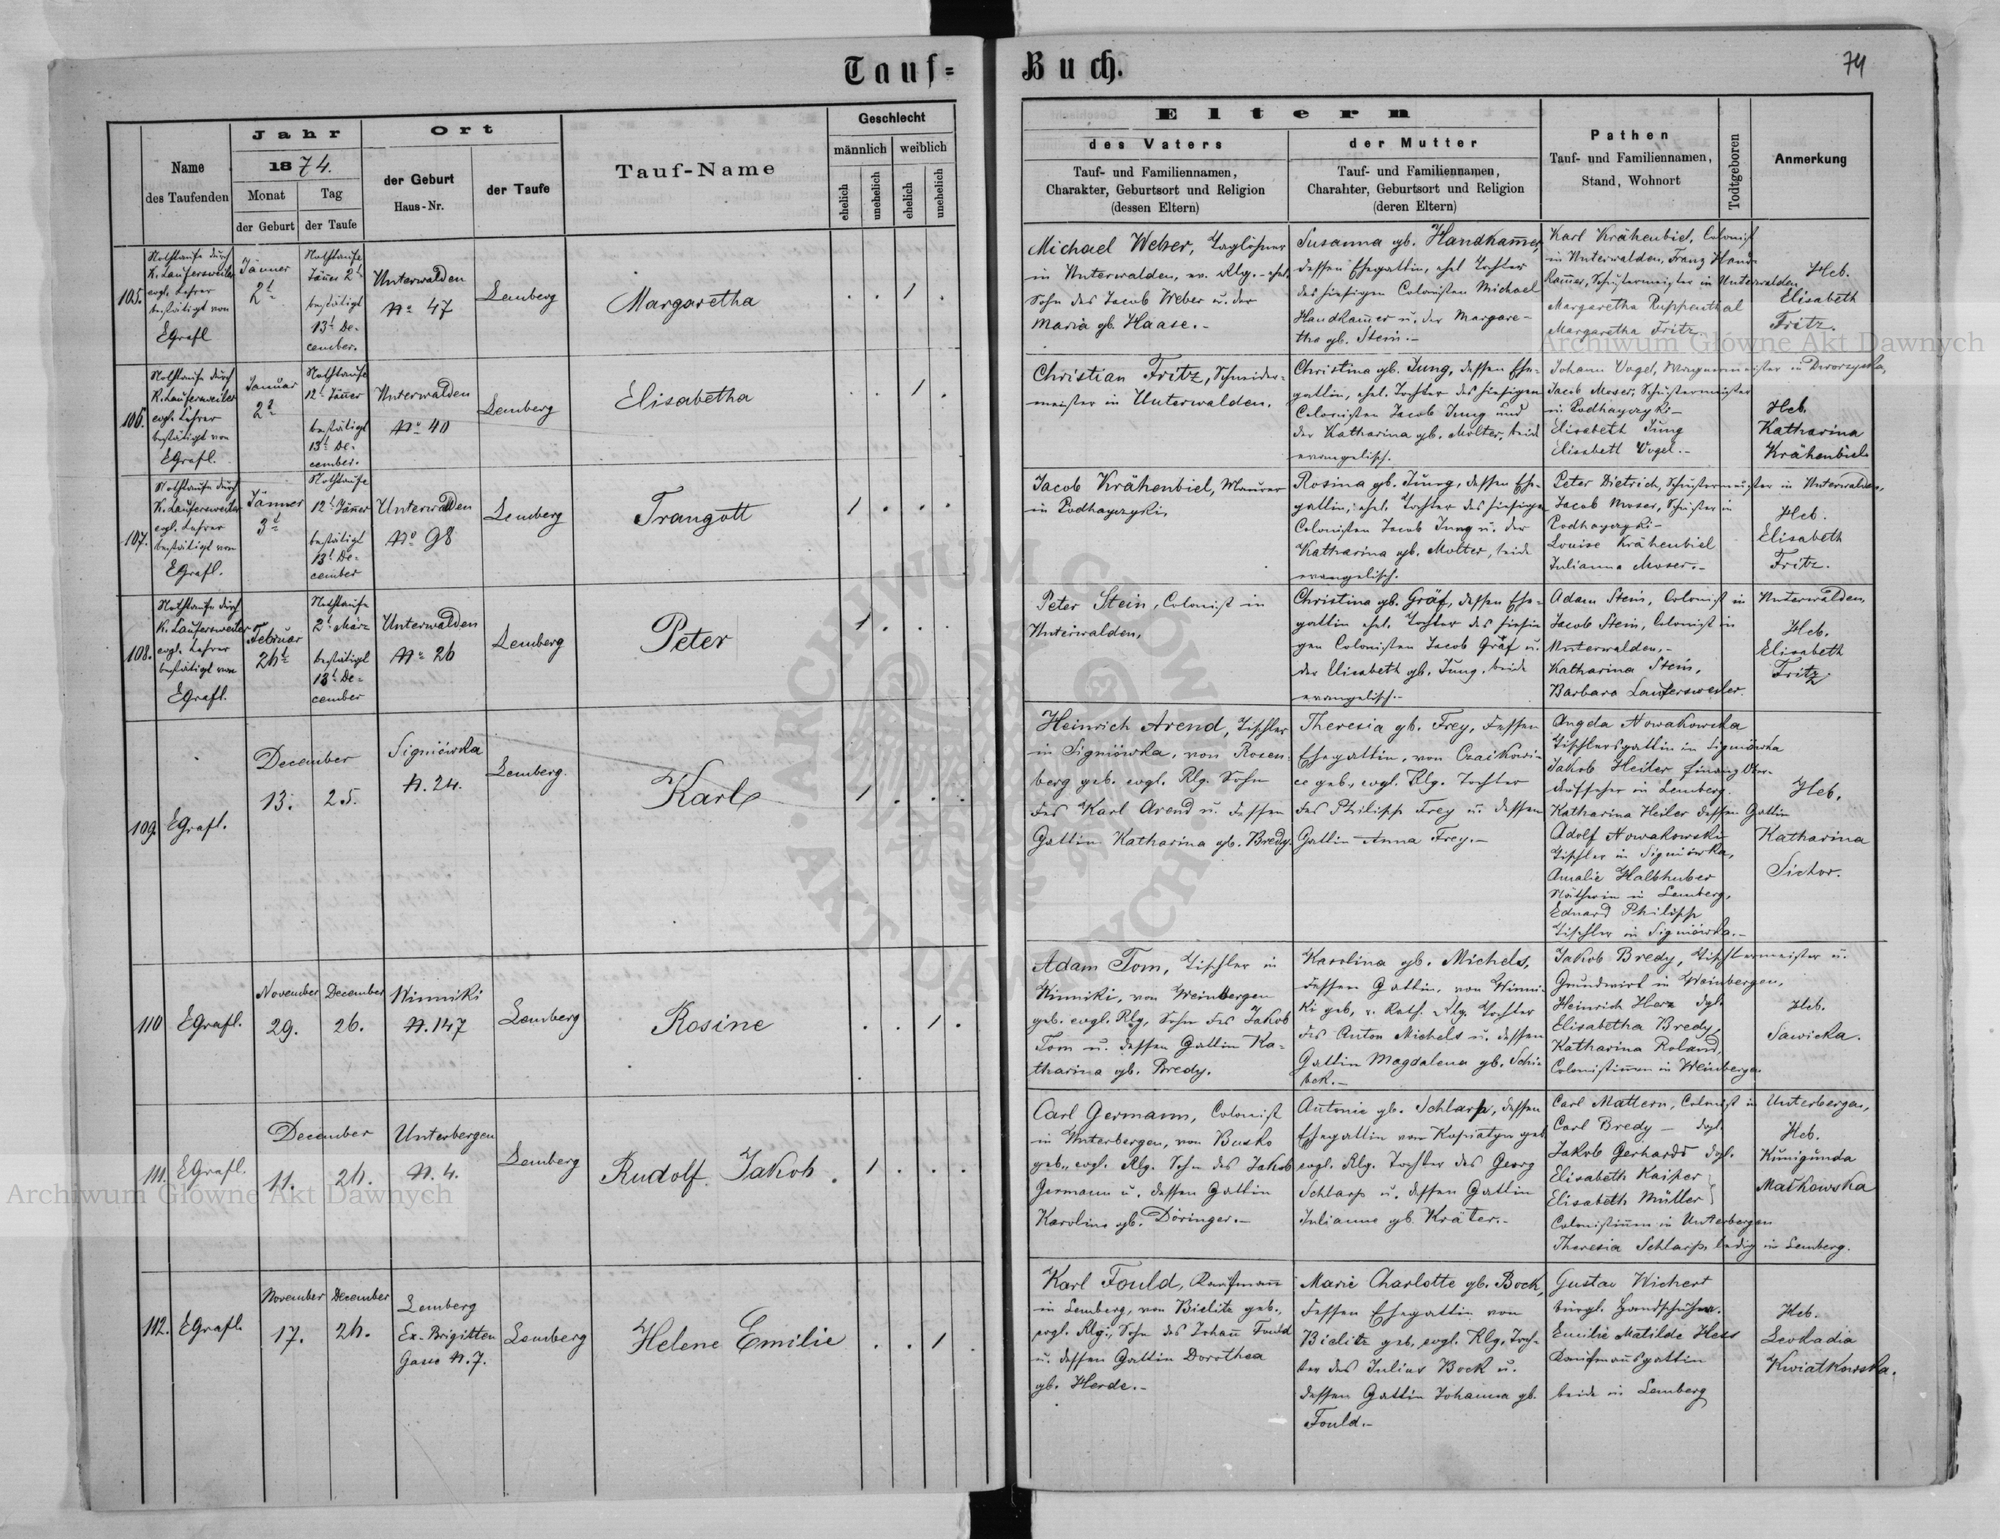 Tauf-
Buch.
74
Name
des Taufenden
Jahr
1874.
Monat
Tag
der Geburt
der Taufe
Ort
der Geburt
Haus-Nr.
der Taufe
Tauf-Name
Geschlecht
männlich
weiblich
ehelich
unehelich
ehelich
unehelich
Eltern
des Vaters
Tauf- und Familiennamen,
Charakter, Geburtsort und Religion
(dessen Eltern)
der Mutter
Tauf- und Familiennamen,
Charahter, Geburtsort und Religion
(deren Eltern)
Pathen
Tauf- und Familiennamen,
Stand, Wohnort
Todtgeboren
Anmerkung
105.
Nothtaufe durch
K. Laufersweiler
evgl. Lehrer
bestätigt von
EGrafl
Jänner
2t
Nothtaufe
Jäner 2t
bestätigt
13t De-
cember.
Unterwalden
No 47
Lemberg
Margaretha
1
Michael Weber, Taglöhner
in Unterwalden, ev. Rlg. - ehel.
Sohn des Jacob Weber u. der
Maria gb. Haase.-
Susanna gb. Handkamer,
dessen Ehegattin, ehel Tochter
des hiesigen Colonisten Michael
Handkamer u. der Margare-
tha gb. Stein.-
Karl Krähenbiel, Colonist
in Unterwalden, Franz Hand-
kamer, Schustermeister in Unterwalden
Margaretha Ruppenthal
Margaretha Fritz
Heb.
Elisabeth
Fritz.
106.
Nothtaufe durch
K. Laufersweiler
evgl. Lehrer
bestätigt von
EGrafl.
Januar
2t
Nothtaufe
12t Jäner
bestätigt
13t De-
cember.
Unterwalden
No 40
Lemberg
Elisabetha
1
Christian Fritz, Schneider-
meister in Unterwalden.
Christina gb. Jung, dessen Ehe-
gattin, ehel. Tochter des hiesigen
Colonisten Jacob Jung und
der Katharina gb. Molter, beide
evangelisch.
Johann Vogel, Wagnermeister in
Jacob Moser, Schustermeister
in Podhayczyki-
Elisabeth Jung
Elisabeth Vogel.-
Heb.
Katharina
Krähenbiel
107.
Nothtaufe durch
K. Laufersweiler
evgl. Lehrer
bestätigt von
EGrafl.
Jänner
3t
Nothtaufe
12t Jäner
bestätigt
13t De-
cember
Unterwalden
No 98
Lemberg
Traugott
1
Jacob Krähenbiel, Maurer
in Podhayczyki,
Rosina gb. Jung, dessen Ehe-
gattin, ehel. Tochter des hiesigen
Colonisten Jacob Jung u. der
Katharina gb. Molter, beide
evangelisch.
Peter Dietrich, Schustermeister in Unterwalden,
Jacob Moser, Schuster in
Podhayczyki-
Louise Krähenbiel
Julianna Moser.-
Heb.
Elisabeth
Fritz.
108.
Nothtaufe durch
K. Laufersweiler
evgl. Lehrer
bestätigt von
EGrafl.
Februar
24t
Nothtaufe
2t März
bestätigt
13t De-
cember
Unterwalden
No 26
Lemberg
Peter
1
Peter Stein, Colonist in
Unterwalden,
Christina gb. Gräf, dessen Ehe-
gattin ehel. Tochter des hiesi-
gen Colonisten Jacob Gräf u.
der Elisabeth gb. Jung, beide
evangelisch.-
Adam Stein, Colonist in Unterwalden,
Jacob Stein, Colonist in
Unterwalden,-
Katharina Stein,
Barbara Laufersweiler
Heb.
Elisabeth
Fritz.
109.
EGrafl.
December
13.
25.
Signiówka
N. 24.
Lemberg.
Karl
1
Heinrich Arend, Tischler
in Signiówka, von Rosen-
berg geb. evgl. Rlg. Sohn
des Karl Arend u. dessen
Gattin Katharina gb. Bredy.
Theresia gb. Frey, dessen
Ehegattin, von Czaikowi-
ce geb., evgl. Rlg. Tochter
des Philipp Frey u. dessen
Gattin Anna Frey.-
Angela Nowakowska
Tischlersgattin in Sigmiówka
Jakob Heiler Finanz Ober-
Aufseher in Lemberg.
Katharina Heiler dessen Gattin
Adolf Nowakowski
Tischler in Sigmiówka,
Amalie Halbhuber
Nätherin in Lemberg,
Eduard Philipp
Tischler in Sigmiówka.-
Heb.
Katharina
Sictor.
110
EGrafl.
November
29.
December
26.
Winniki
N. 147
Lemberg
Rosine
1
Adam Tom, Tischler in
Winniki, von Weinbergen
geb. evgl. Rlg, Sohn des Jakob
Tom u. dessen Gattin Ka-
tharina gb. Bredy.
Karolina gb. Michels,
dessen Gattin, von Winni-
ki geb, r. kath. Rlg. Tochter
des Anton Michels u. dessen
Gattin Magdalena gb. Schi-
bek.-
Jakob Bredy, Tischlermeister u.
Grundwirt in Weinbergen,
Heinrich Herz dgl.
Elisabetha Bredy,
Katharina Roland,
Colonistinnen in Weinbergen
Heb.
Sawicka.
111.
EGrafl.
December
11.
24.
Unterbergen
N. 4.
Lemberg
Rudolf Jakob.
1
Carl Germann, Colonist
in Unterbergen, von Busko
geb., evgl. Rlg. Sohn des Jakob
Germann u. dessen Gattin
Karoline gb. Döringer.-
Antonie gb. Schlarp, dessen
Ehegattin von Kopiatyn geb
evgl. Rlg. Tochter des Georg
Schlarp u. dessen Gattin
Julianne gb. Kräter.-
Carl Mattern, Colonist in Unterbergen,
Carl Bredy - dgl.
Jakob Gerhards dgl.
Elisabeth Kaiser
Elisabeth Müller
Colonistinnen in Unterbergen
Theresia Schlarp, ledig in Lemberg.
Heb.
Kunigunda
Malkowska
112.
EGrafl.
November
17.
December
24.
Lemberg
Ex. Brigitten
Gasse N. 7.
Lemberg
Helene Emilie
1
Karl Fould, Kaufmann
in Lemberg, von Bielitz geb.,
evgl. Rlg., Sohn des Johann Fould
u. dessen Gattin Dorothea
gb. Herde.-
Marie Charlotte gb. Bock,
dessen Ehegattin von
Bielitz geb., evgl. Rlg., Toch-
ter des Julius Bock u.
dessen Gattin Johanna gb.
Fould.-
Gustav Wichert
bürgl. Handschuhm.
Emilie Matilde Hess
Kaufmannsgattin
beide in Lemberg
Heb.
Leokadia
Kwiatkowska.
Archiwum Główne Akt Dawnych
Archiwum Główne Akt Dawnych
ARCHIWUM GŁÓWNE AKT DAWNYCH